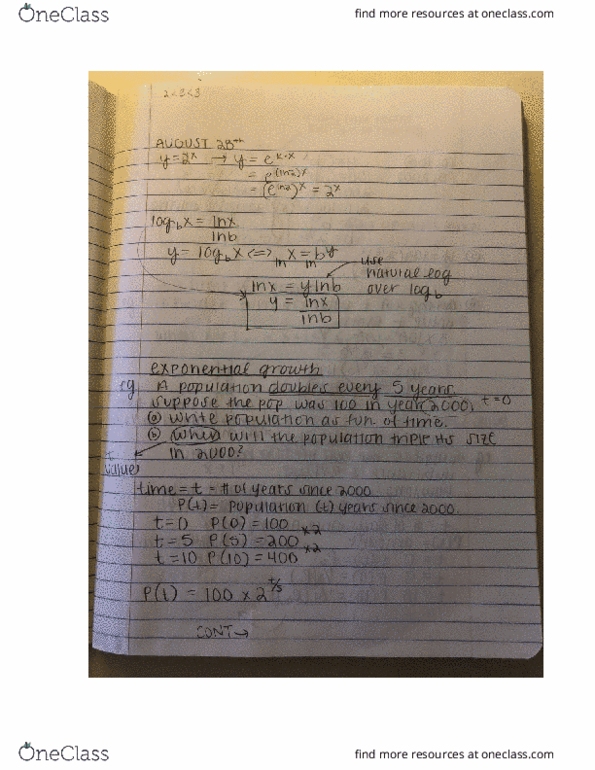 OneClass
find more resources at oneclass.com
2<3<3
AUGUST 28th
y=2ˣ → y = e^(k·x)
= e^((ln2)x)
= (e^(ln2))ˣ = 2ˣ
log_b x = lnx
lnb
y = log_b x <=> ln x = ln b^y
use
natural log
over log_b
lnx = y lnb
y = lnx
lnb
exponential growth
eg A population doubles every 5 years.
suppose the pop was 100 in year 2000. t=0
(a) write population as fun of time.
(b) when will the population triple its size
in 2000?
t
value
time = t = # of years since 2000
P(t) = population (t) years since 2000.
t=0 P(0) = 100
x2
t=5 P(5) = 200
x2
t=10 P(10) = 400
P(t) = 100 × 2^(t/5)
CONT →
OneClass
find more resources at oneclass.com